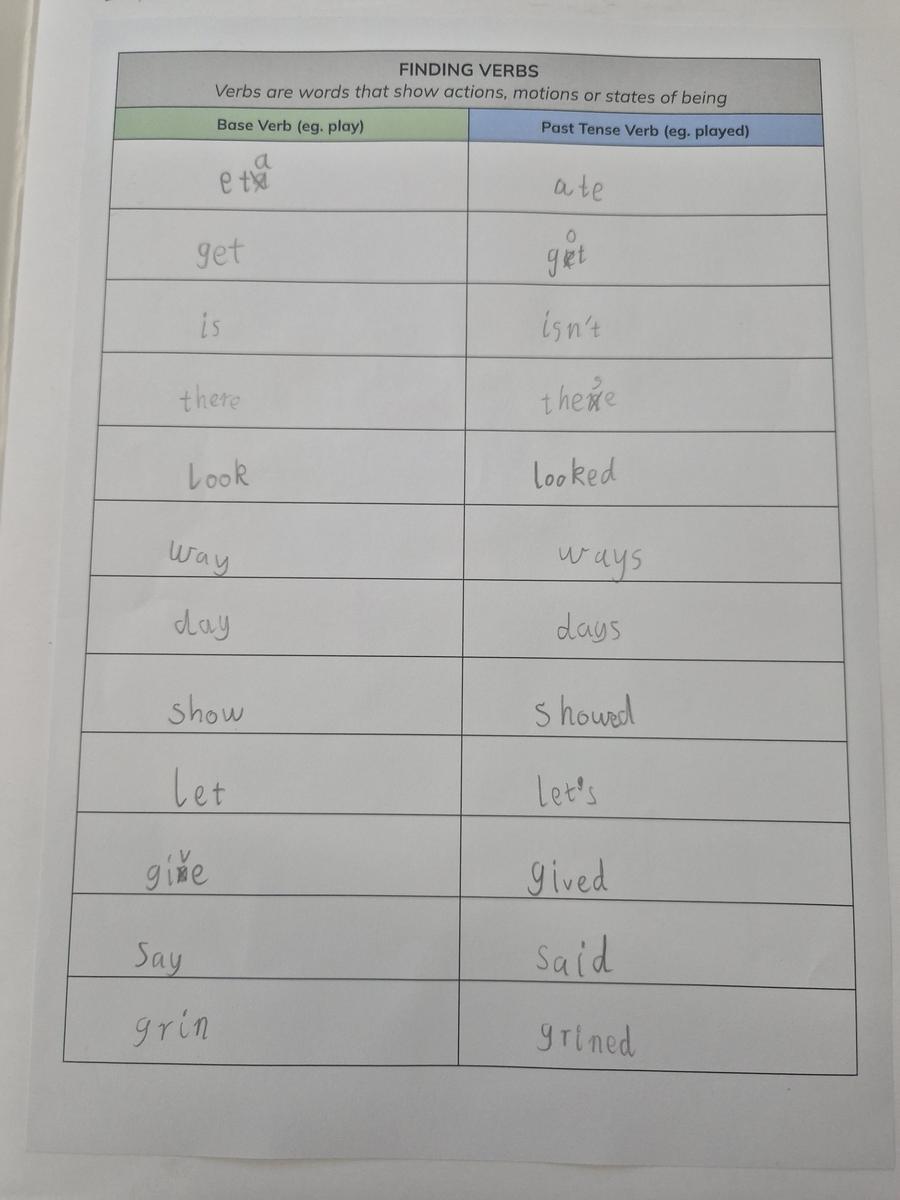 FINDING VERBS
Verbs are words that show actions, motions or states of being
Base Verb (eg. play) Past Tense Verb (eg. played)
eta ate
get got
is isn't
there these
Look looked
way ways
day days
show showed
Let let's
give gived
Say said
grin grined